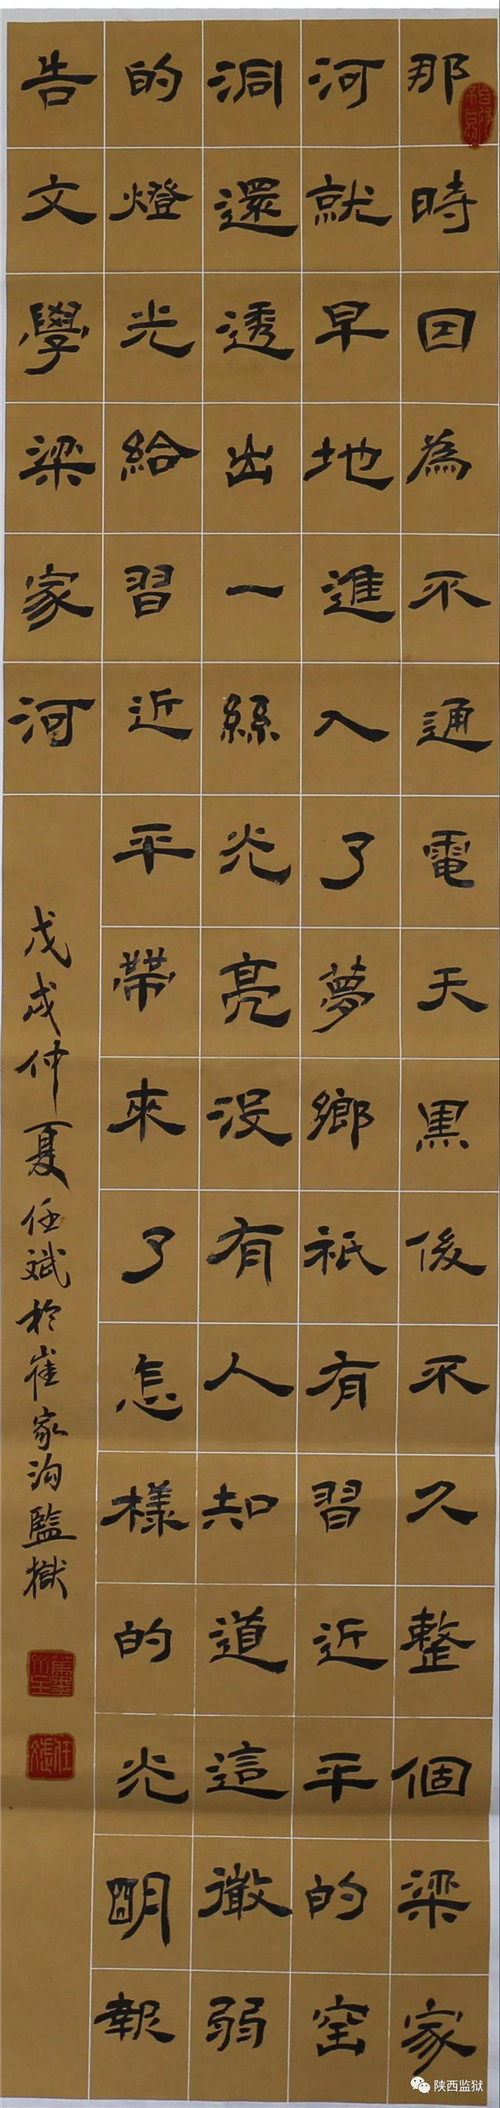 那時因為不通電天黑後不久整個梁家
河就早地進入了夢鄉衹有習近平的窑
洞還透出一絲光亮没有人知道這微弱
的燈光給習近平帶來了怎樣的光明報
告文學梁家河
戊戌仲夏任斌於崔家沟監獄
陕西监狱